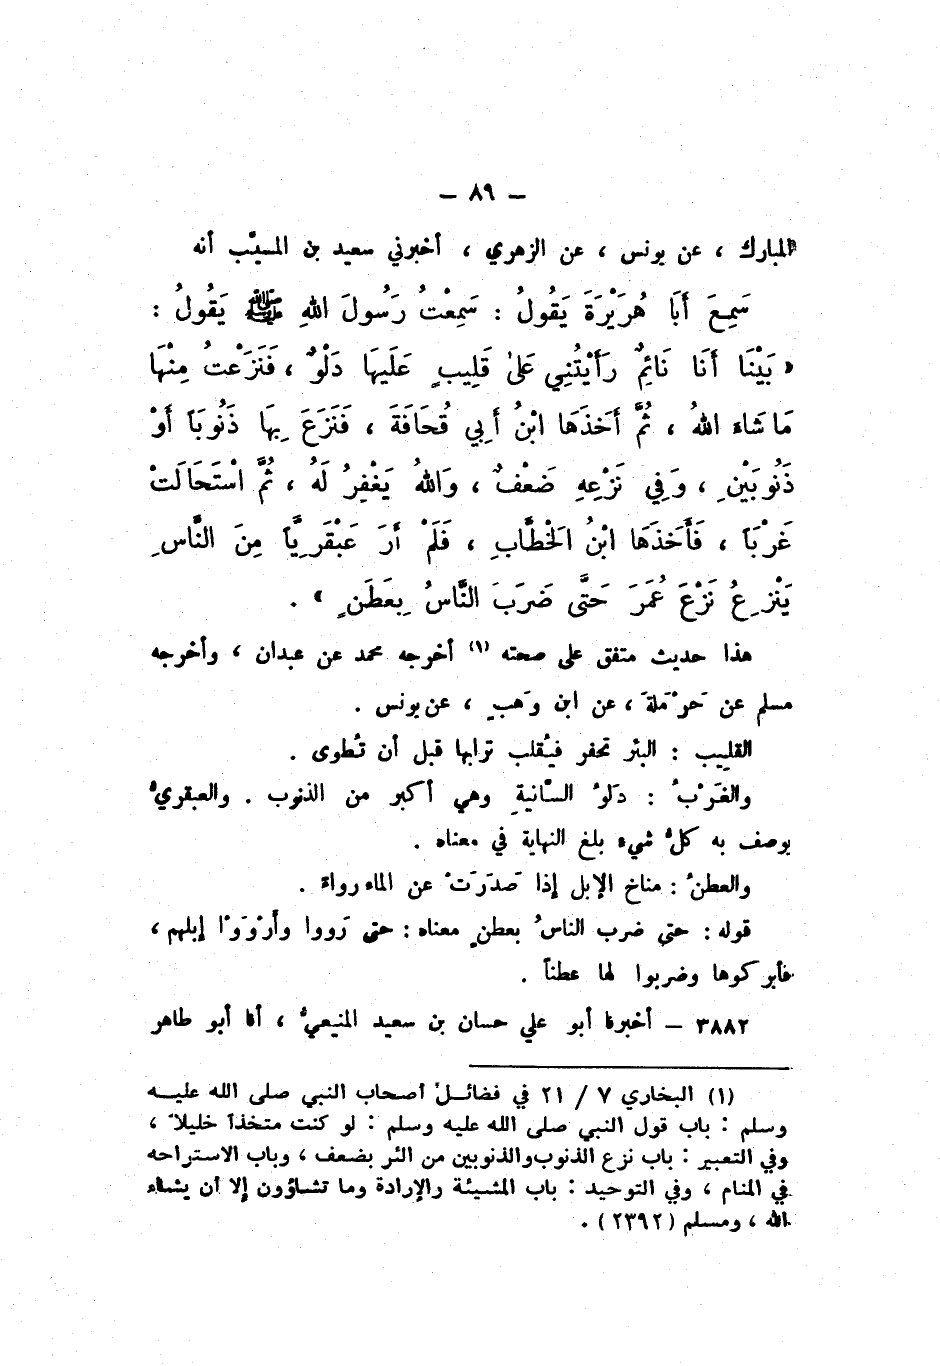 – ٨٩ –
المبارك ، عن يونس ، عن الزهري ، أخبرني سعيد بن المسيَّب أنه
سَمِعَ أَبَا هُرَيْرَةَ يَقُولُ : سَمِعْتُ رَسُولَ اللهِ ﷺ يَقُولُ :
« بَيْنَا أَنَا نَائِمٌ رَأَيْتُنِي عَلَىٰ قَلِيبٍ عَلَيهَا دَلْوٌ ، فَنَزَعْتُ مِنْهَا
مَا شَاءَ اللهُ ، ثُمَّ أَخَذَهَا ابْنُ أَبِي قُحَافَةَ ، فَنَزَعَ بِهَا ذَنُوبَاً أَوْ
ذَنُوبَيْنِ ، وَفِي نَزْعِهِ ضَعْفٌ ، وَاللهُ يَغْفِرُ لَهُ ، ثُمَّ اسْتَحَالَتْ
غَرْبَاً ، فَأَخَذَهَا ابْنُ الخَطَّابِ ، فَلَمْ أَرَ عَبْقَرِيَّاً مِنَ النَّاسِ
يَنْزِعُ نَزْعَ عُمَرَ حَتَّى ضَرَبَ النَّاسُ بِعَطَنٍ » .
هذا حديث متفق على صحته (١) أخرجه محمد عن عبدان ، وأخرجه
مسلم عن حَرْمَلةَ ، عن ابن وَهبٍ ، عن يونس .
القليب : البئر تحفر فيُقلب ترابها قبل أن تُطوى .
والغَرْبُ : دَلوُ السَّانيةِ وهي أكبر من الذنوب . والعبقريُّ
يوصف به كلُّ شيء بلغ النهاية في معناه .
والعطنُ : مناخ الإبل إذا صَدَرَتْ عن الماء رواءً .
قوله : حتى ضرب الناسُ بعطنٍ معناه : حتى رَووا وأَرْوَوْا إبلهم ،
فأبركوها وضربوا لها عطناً .
٣٨٨٢ – أخبرنا أبو علي حسان بن سعيد المنيعيُّ ، أنا أبو طاهر
(١) البخاري ٧ / ٢١ في فضائل أصحاب النبي صلى الله عليه
وسلم : باب قول النبي صلى الله عليه وسلم : لو كنت متخذاً خليلاً ،
وفي التعبير : باب نزع الذنوب والذنوبين من البئر بضعف ، وباب الاستراحه
في المنام ، وفي التوحيد : باب المشيئة والإرادة وما تشاؤون إلا أن يشاء
الله ، ومسلم (٢٣٩٢) .